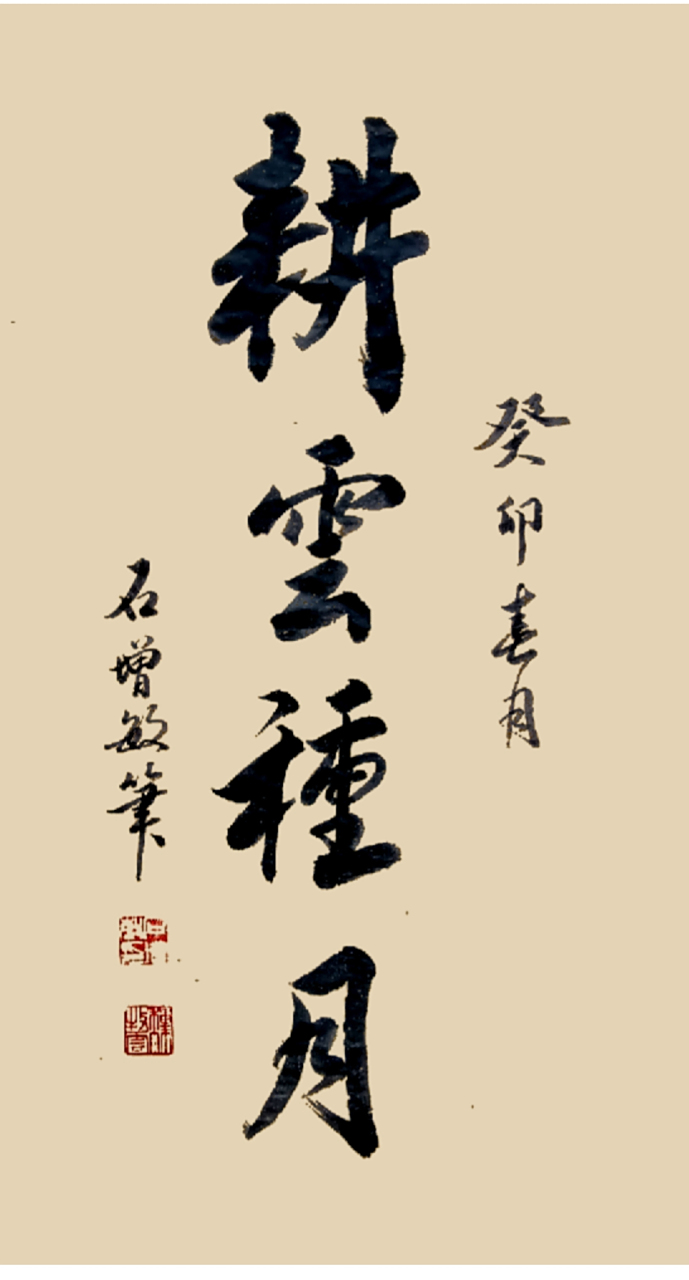 癸卯春月
耕雲種月
石增敏筆